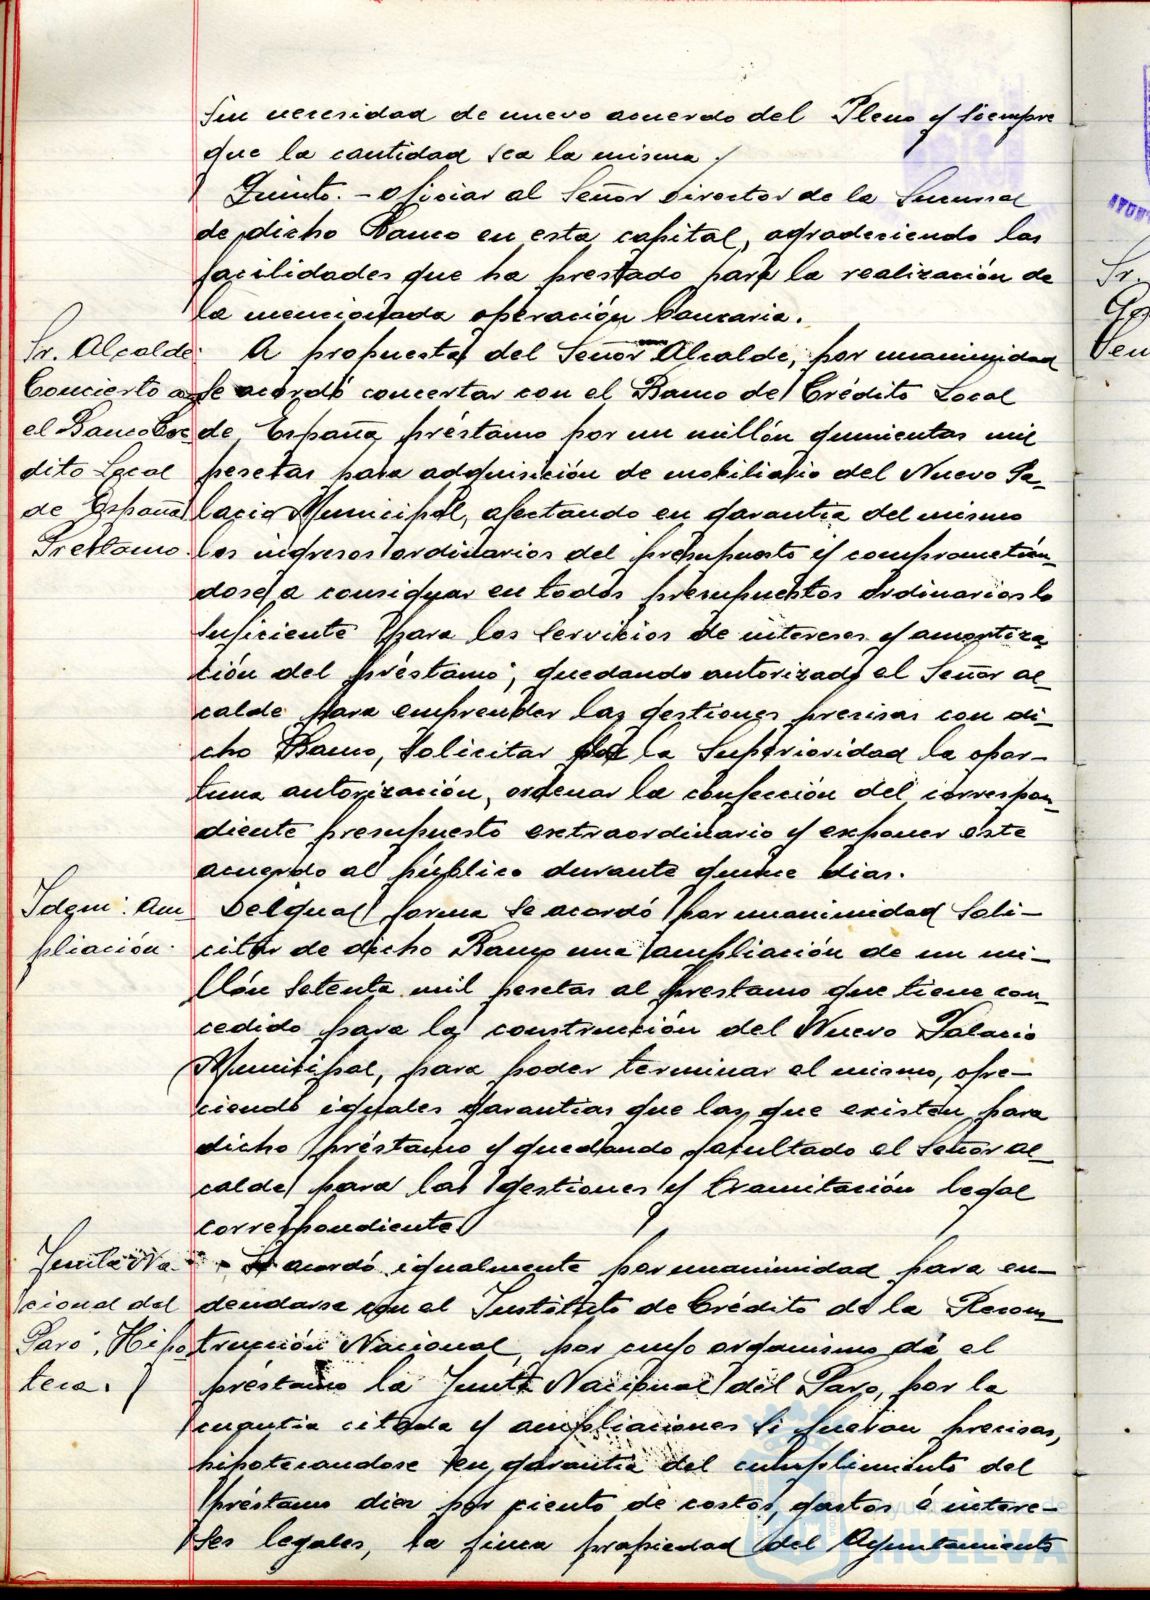 sin necesidad de nuevo acuerdo del Pleno y siempre
que la cantidad sea la misma
Quinto.- Oficiar al Señor Director de la Sucursal
de dicho Banco en esta capital, agradeciendo las
facilidades que ha prestado para la realización de
la mencionada operación bancaria.
Sr. Alcalde
Concierto 
el Banco Cre
dito Local
de España
Prestamo.
A propuesta del Señor Alcalde, por unanimidad
se acordó concertar con el Banco de Crédito Local
de España préstamo por un millón quinientas mil
pesetas para adquisición de mobiliario del Nuevo Pa-
lacio Municipal, afectando en garantía del mismo
los ingresos ordinarios del presupuesto y comprometién-
dose a consignar en todos presupuestos ordinarios lo
suficiente para los servicios de intereses y amortiza-
ción del préstamo, quedando autorizado el Señor al-
calde para emprender las gestiones precisas con di-
cho Banco, solicitar la Superioridad la opor-
tuna autorización, ordenar la confección del correspon-
diente presupuesto extraordinario y exponer este
acuerdo al público durante quince dias.
Idem. Am
pliación.
De igual forma se acordó por unanimidad soli-
citar de dicho Banco una ampliación de un mi-
llón setenta mil pesetas al prestamo que tiene con-
cedido para la construcción del Nuevo Palacio
Municipal, para poder terminar el mismo, ofre-
ciendo iguales garantias que las que existen para
dicho préstamo y quedando facultado el Señor al-
calde para las gestiones y tramitación legal
correspondiente.
Junta Na-
cional del
Paro, Hipo
teca.
Se acordó igualmente por unanimidad para en-
deudarse con el Instituto de Crédito de la Recons-
trucción Nacional, por cuyo organismo dá el
préstamo la Junta Nacional del Paro, por la
cuantia citada y ampliaciones si fueran precisas,
hipotecandose en garantia del cumplimiento del
préstamo diez por ciento de costos, gastos é intere-
ses legales, la finca propiedad del Ayuntamiento
Ayuntamiento de
HUELVA
Sr.